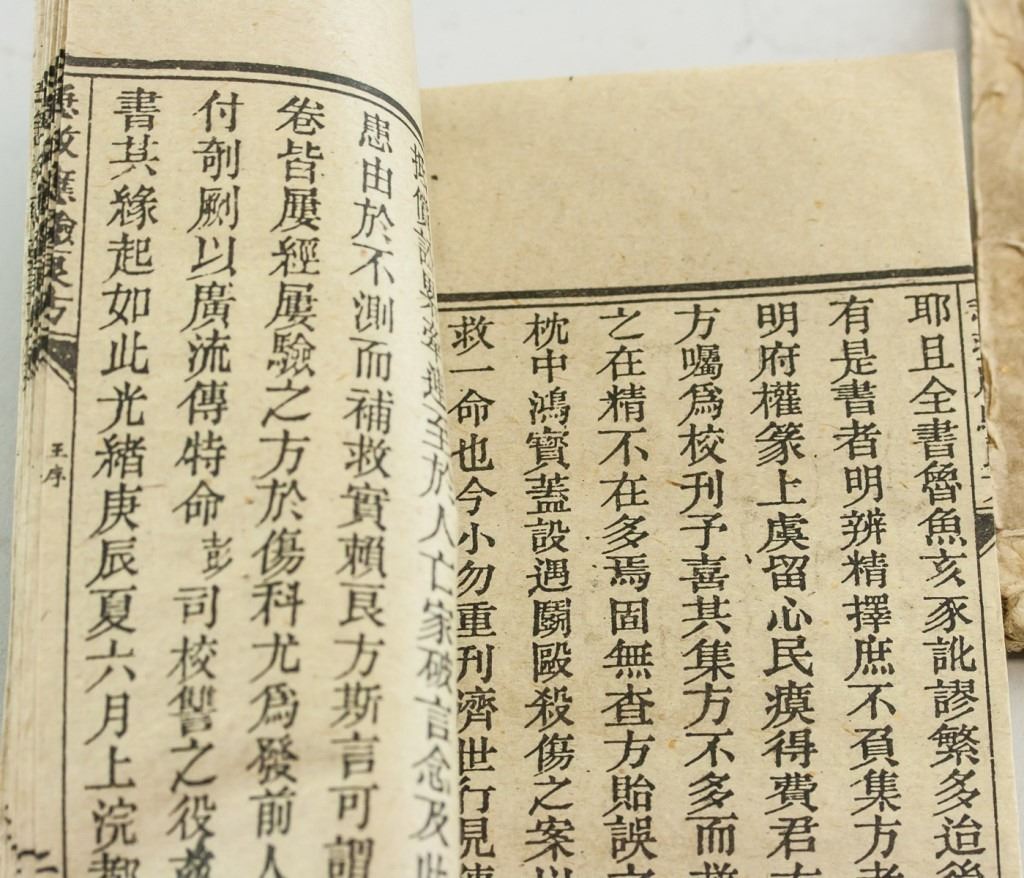 耶且全書魯魚亥豕訛謬繁多迨後
有是書者明辨精擇庶不負集方者
明府權篆上虞留心民瘼得費君
方囑爲校刊予喜其集方不多而
之在精不在多焉固無查方貽誤之
枕中鴻寶蓋設遇鬭毆殺傷之案以
救一命也今小勿重刊濟世行見
至於人亡家破言念及此
患由於不測而補救實賴良方斯言可謂
卷皆屢經屢驗之方於傷科尤爲發前人
付剞劂以廣流傳特命彭司校讐之役爰
書其緣起如此光緒庚辰夏六月上浣都
急救應驗良方
王序